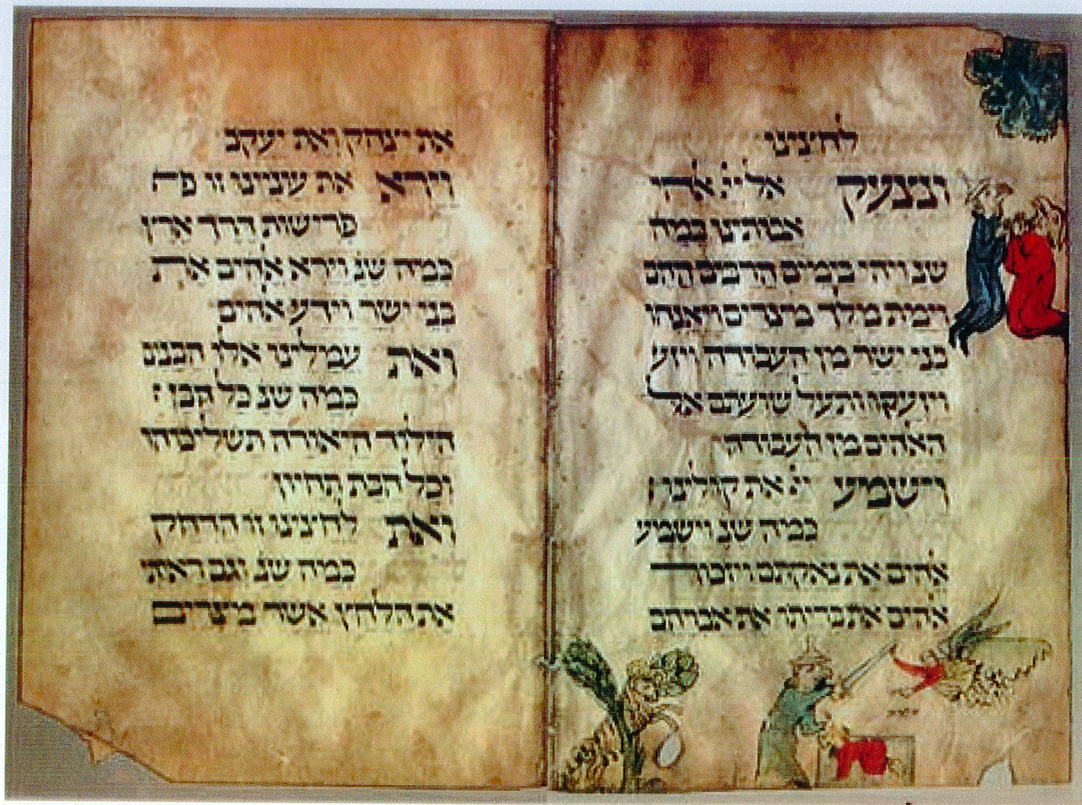 לחצינו
ונצעק אל ייי אלהי
אבותינו כמה
שנ ויהי בימים הרבים ההם
וימת מלך מצרים ויאנחו
בני ישר מן העבודה ויזע
ויזעקו ותעל שועתם אל
האלהים מן העבודה
וישמע יי את קולינו
כמה שנ וישמע
אלהים את נאקתם ויזכור
אלהים את בריתו את אברהם
את יצחק ואת יעקב
וירא את עינינו זו פר
פרישות דרך ארץ
כמה שנ וירא אלהים את
בני ישר וידע אלהים
ואת עמלינו אלו הבנים
כמה שנ כל הבן :
הילוד היאורה תשליכהו
וכל הבת תחיון
ואת לחצינו זו הדחק
כמה שנ וגם ראיתי
את הלחץ אשר מצרים